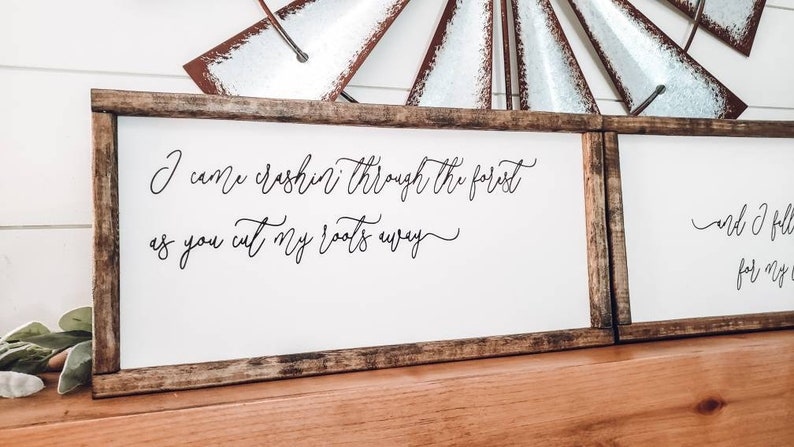 I came crashin' through the forest
as you cut my roots away
and I fell
for my